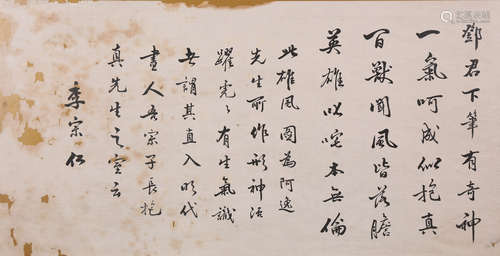 鄧君下筆有奇神
一氣呵成似抱真
百獸聞風皆落膽
英雄以本無倫
此雄風圖為阿逸
先生所作形神活
躍虎々有生氣識
者謂其直入明代
畫人吾宗子長抱
真先生之室云
李宗仁